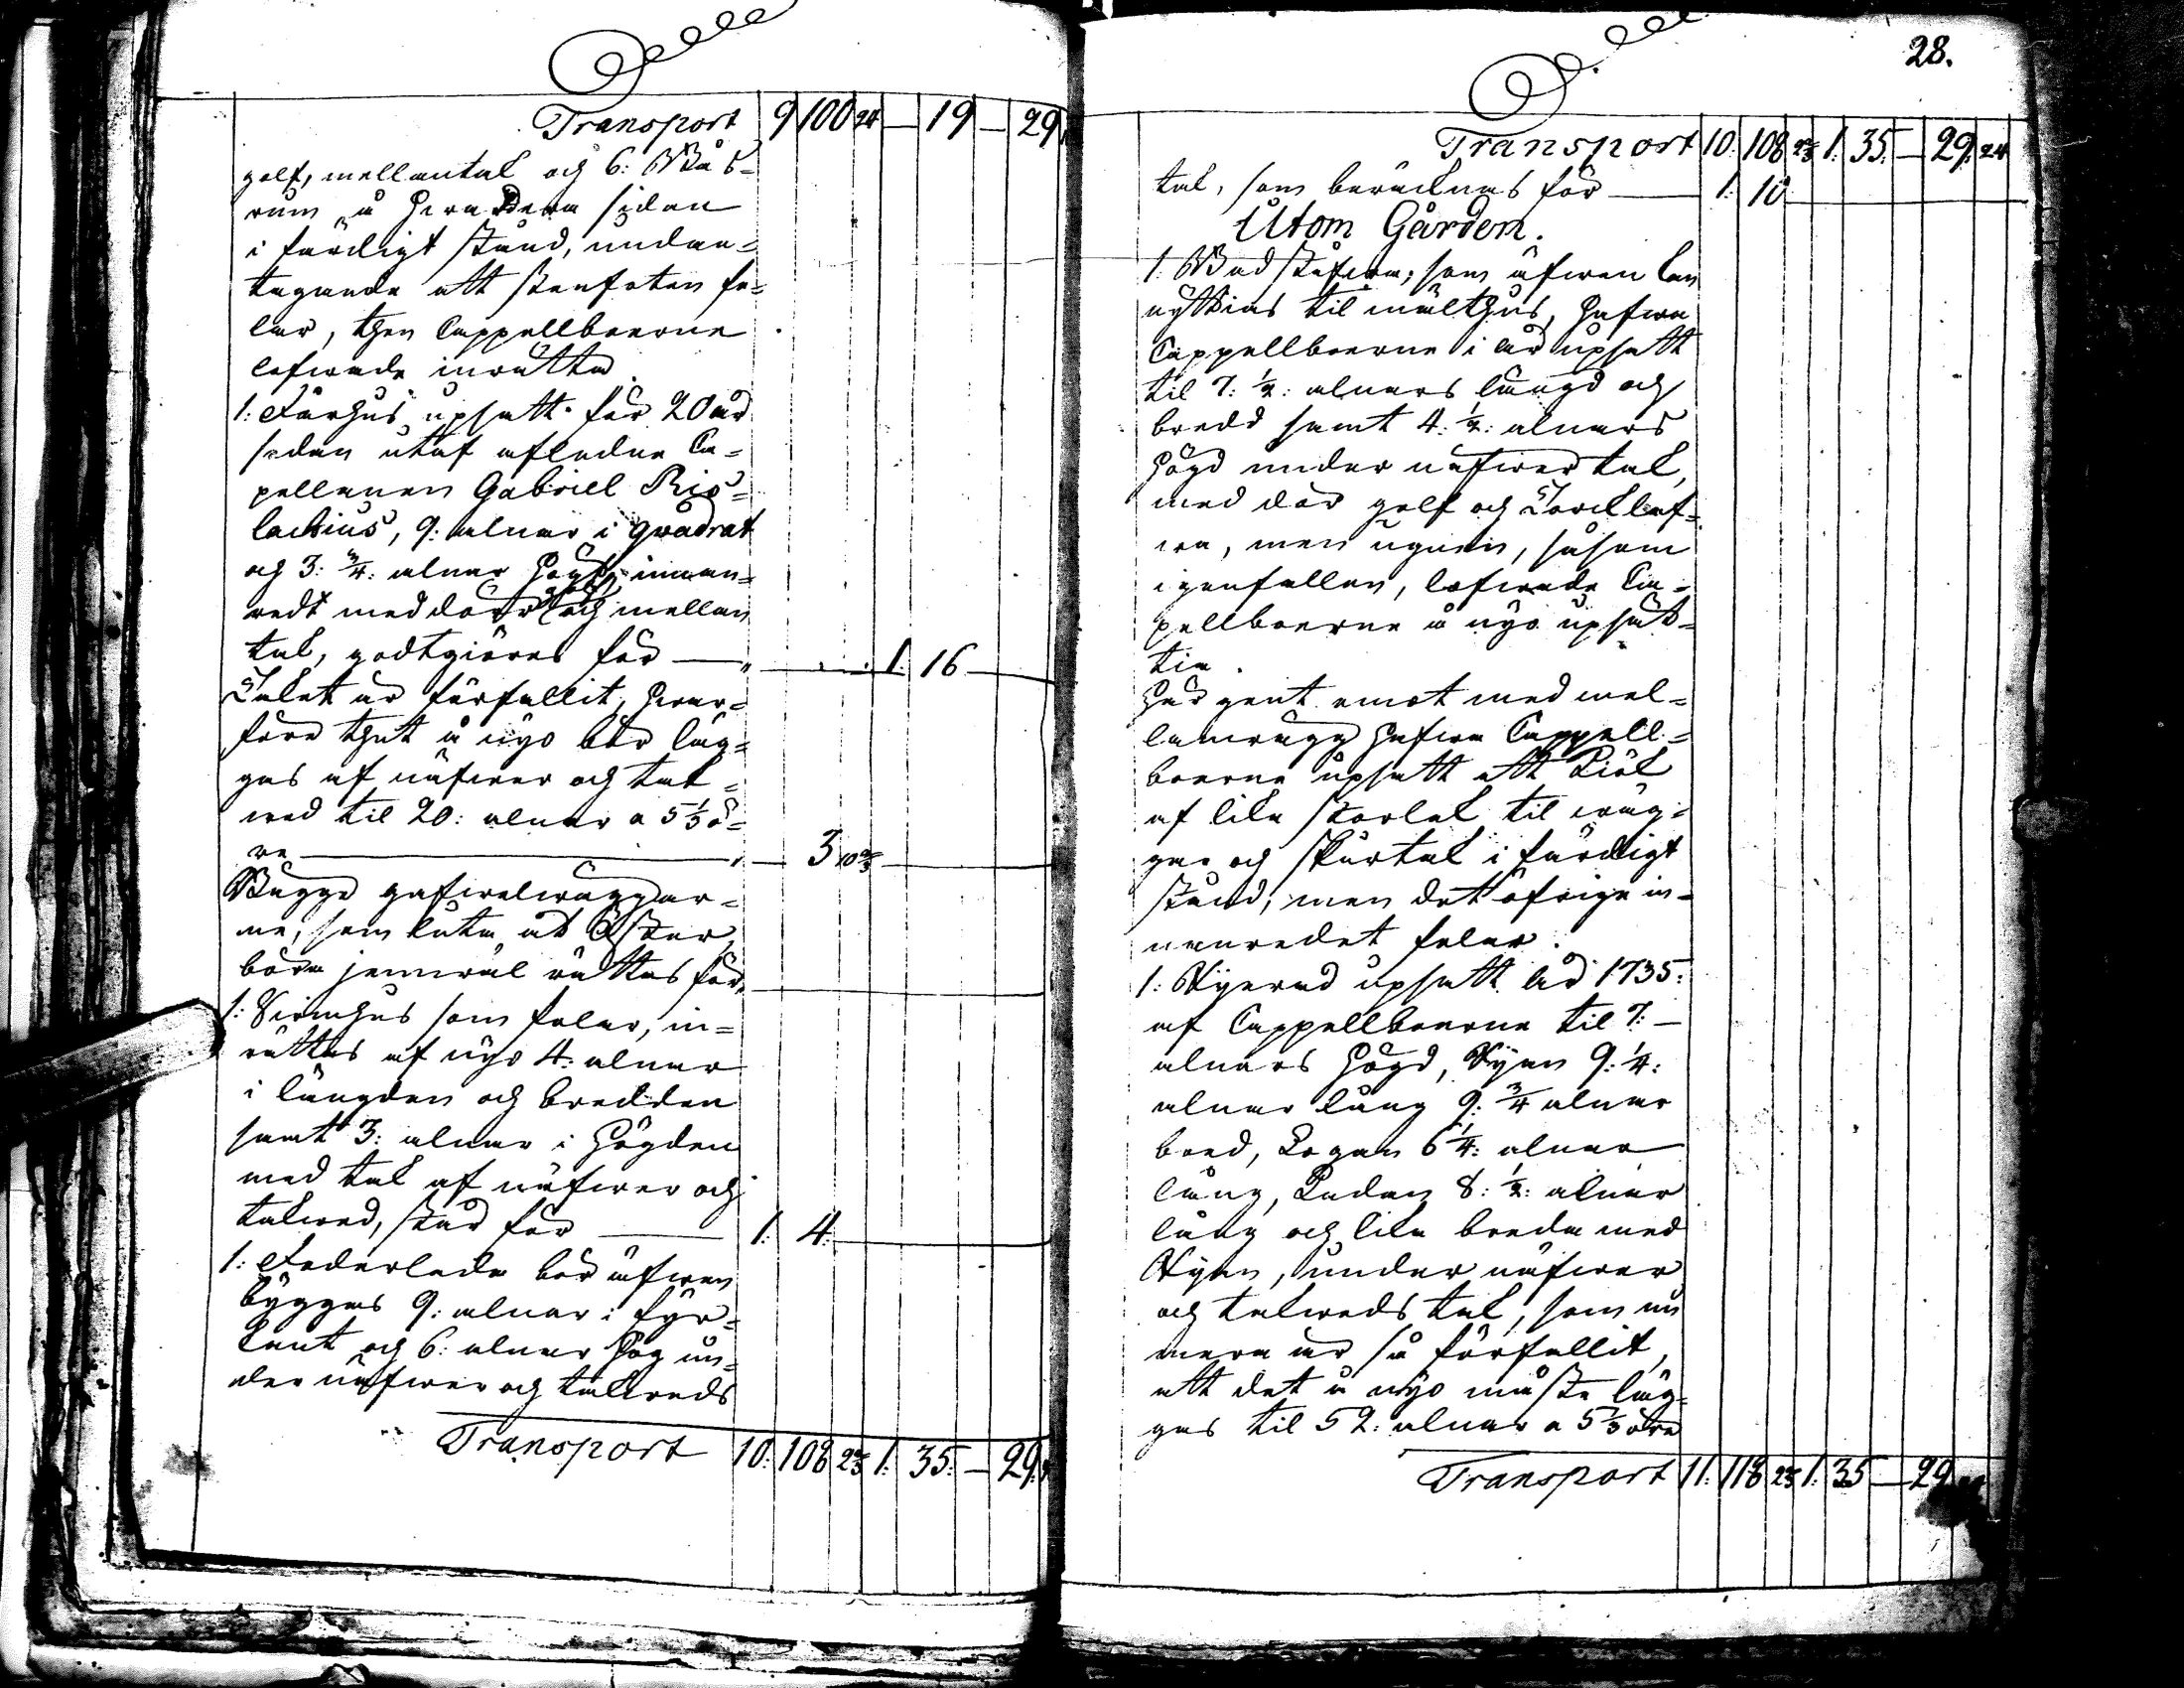 Transport 9 100 24 — 19 — 29
golf, mellantak och 6: Bås=
rum å hvardera sidan
i färdigt stånd, undan=
tagande att stenfoten fe=
lar, then Cappellboerne
lofwade inrätta
1: Fårhus upsatt för 20 år
sedan utaf afledne Ca=
pellanen Gabriel
9: alnar i quadrat
och 3: 3/4: alnar högt, innan=
redt med dörr golf och mellan
tak, godtgiöres för — 1: 16
Taket är förfallit, hwar=
före thet å nyo bör läg=
gas af näfwer och tak=
wed til 20: alnar a 5 1/3 ö=
re — 3 10 2/3
Bägge gafwelwäggar=
ne, som luta åt Öster
böra jemwäl rättas för
1: Swinhus som felar, in=
rättas af nyo 4: alnar
i längden och bredden
samt 3: alnar i högden
med tak af näfwer och
takwed, står för — 1: 4:
1: Foderlada bör äfwen
byggas 9: alnar i fyr=
kant och 6: alnar hög un=
der näfwer och takweds
Transport 10: 108 23 1: 35: — 29:
28.
Transport 10: 108 23 1: 35: — 29: 24
tak, som beräcknas för — 1: 10
Utom Gården.
1: Badstufwa, som äfwen kan
nyttias til mälthus, hafwa
Cappellboerne i år upsatt
til 7: 1/2: alnars längd och
bredd samt 4: 1/2: alnars
högd under näfwer tak,
med dör golf och Torcklaf=
wa, men ugnen, såsom
igenfallen, lofwade Ca=
pellboerne å nyo upsät=
tia.
Här gent emot med mel=
lanwägg hafwa Cappell=
boerne upsatt ett Kiök
af lika storlek til wäg=
gar och skurtak i färdigt
stånd, men det öfriga in=
nanredet felar.
1: Ryerad upsatt åd 1735:
af Cappellboerne til 7: —
alnars högd, Ryan 9: 1/4:
alnar lång 9: 3/4 alnar
bred, Logan 6 1/4: alnar
lång, Ladan 8: 1/2: alnar
lång och lika breda med
Ryan, under näfwer
och takweds tak, som nu
mera är så förfallit,
att det å nyo måste läg=
gas til 52: alnar a 5 1/3 öre
Transport 11: 118 23 1: 35 — 29